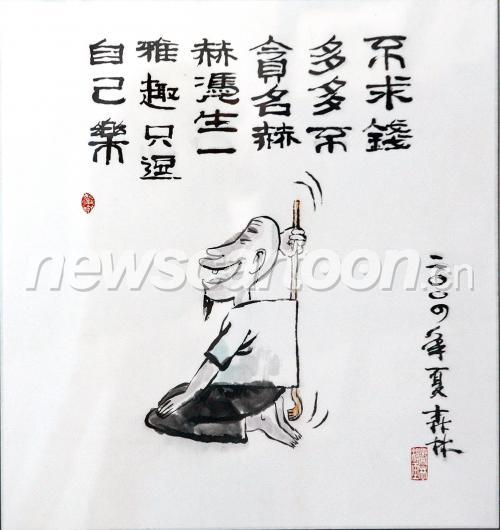 不求錢
多多不
貪名赫
赫憑生一
雅趣只逗
自己樂
二〇〇四年夏森林
newscartoon.cn